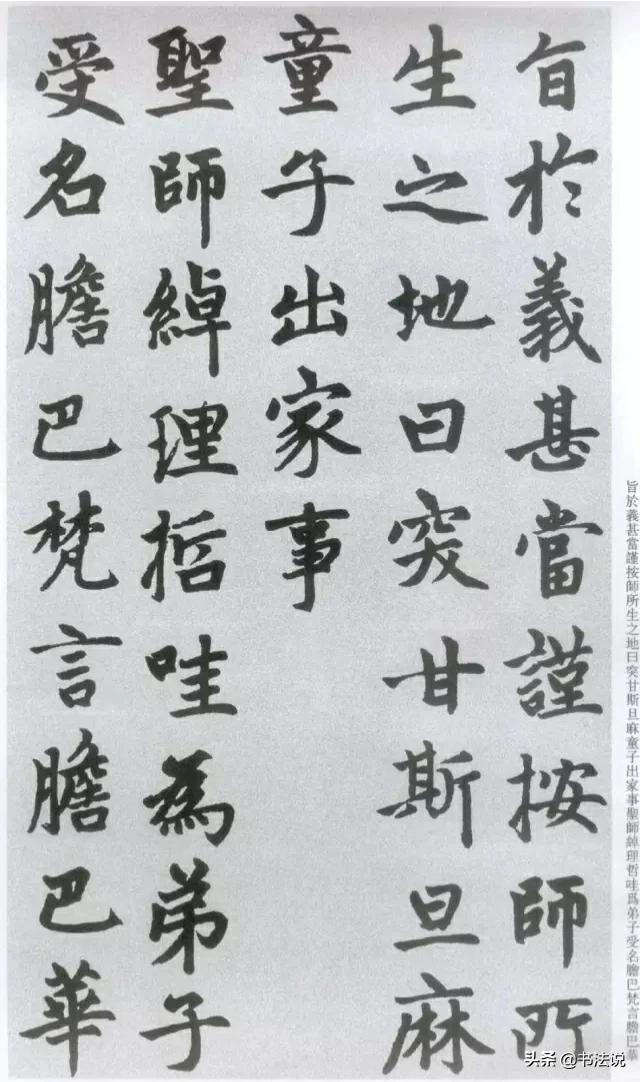 旨於義甚當謹按師所
生之地曰突甘斯旦麻
童子出家事
聖師綽理哲哇為弟子
受名膽巴梵言膽巴華
旨於義甚當謹按師所生之地曰突甘斯旦麻童子出家事聖師綽理哲哇爲弟子受名膽巴梵言膽巴華
头条 @书法说